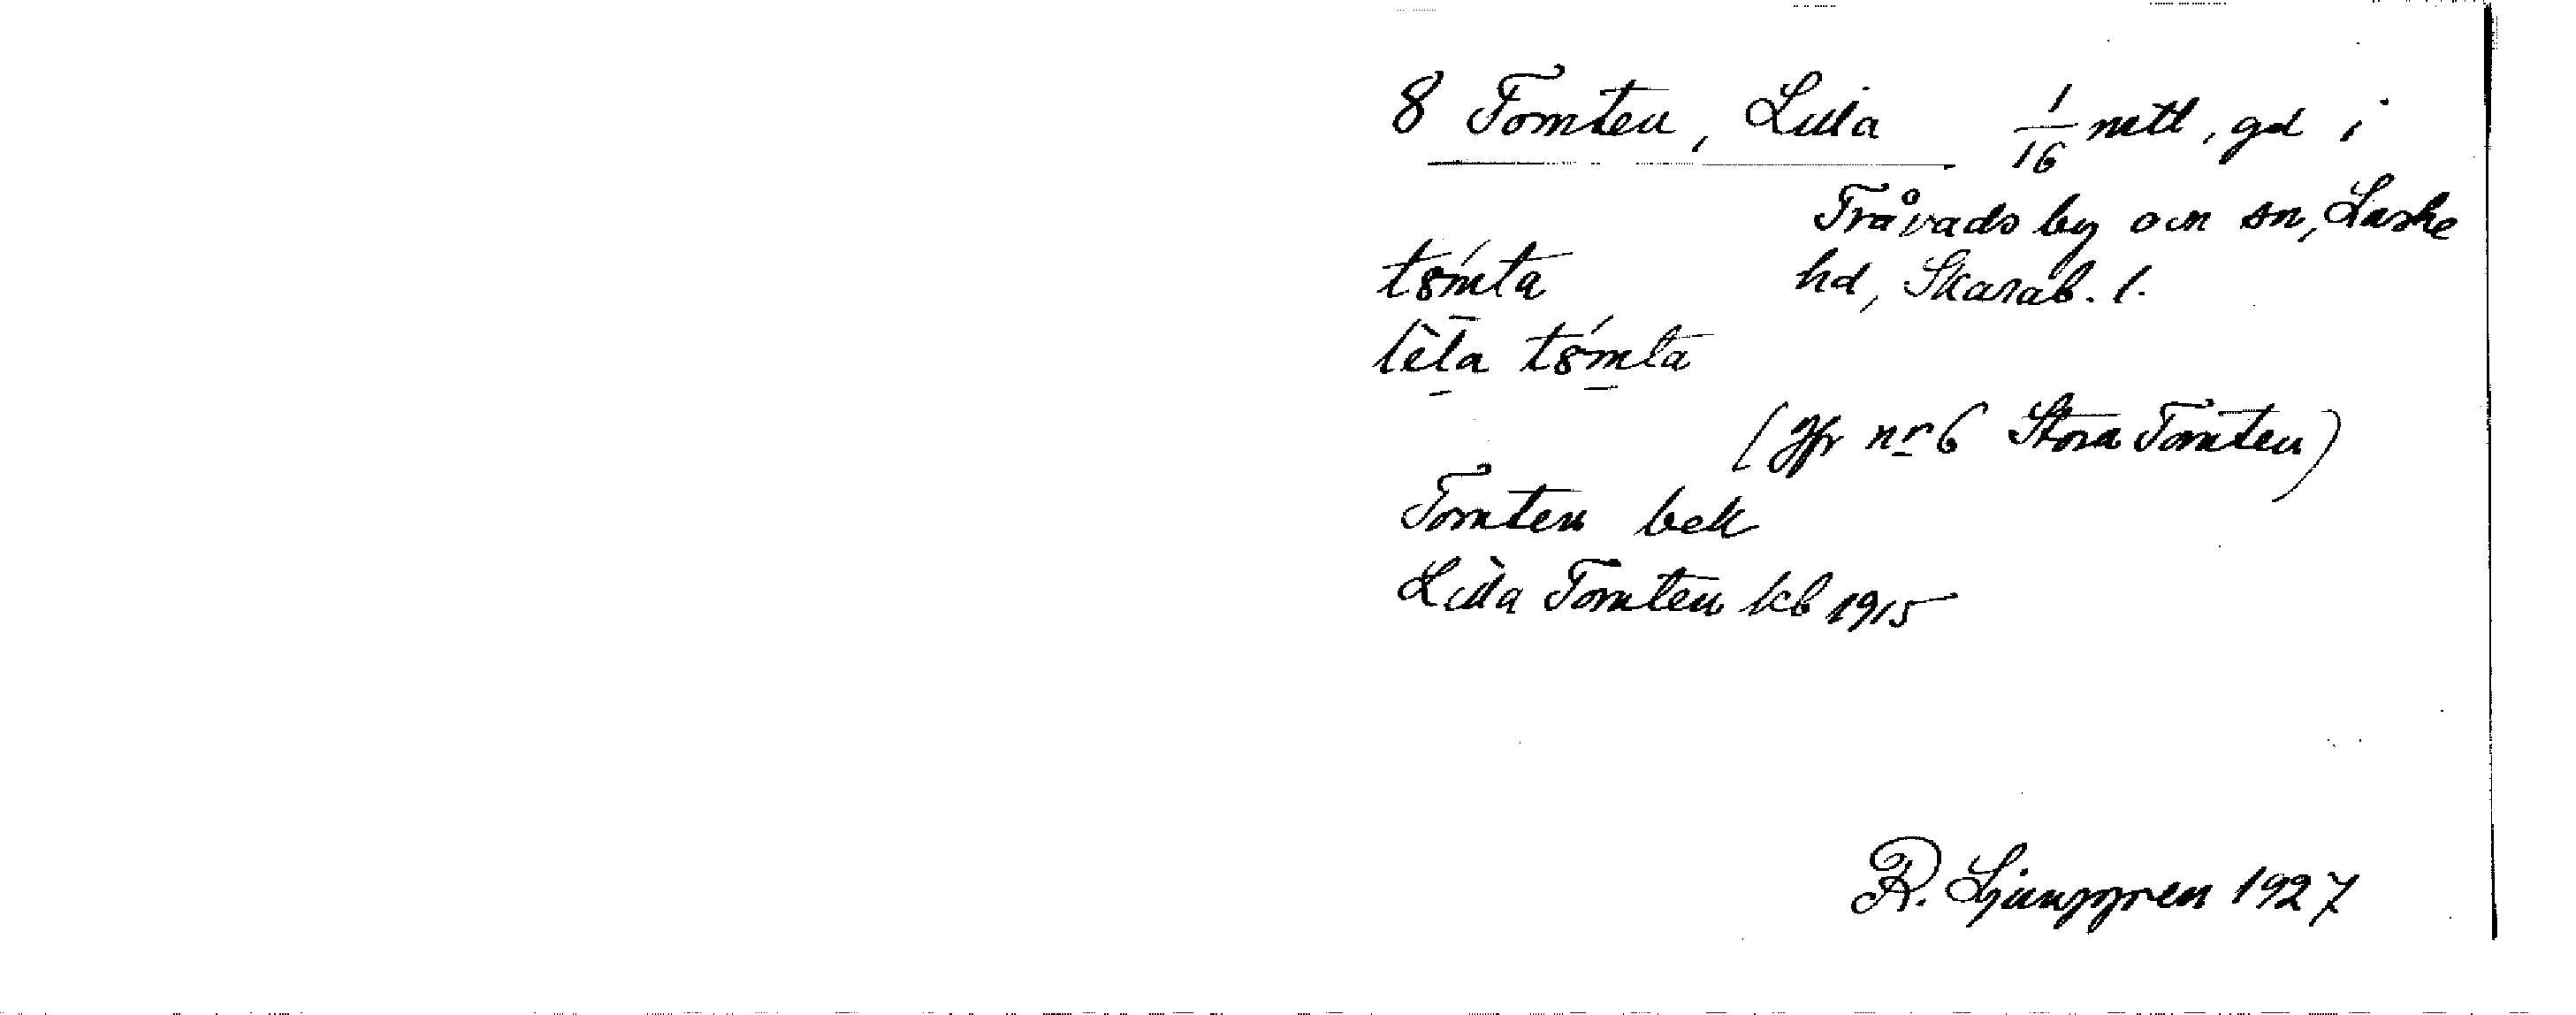 8 Tomten, Lilla 1/16 mtl, gd i
Tråvads by och sn, Laske
hd, Skarab. l.
t8́mta
lèla t8́mta
(Jfr nr 6 Stora Tomten)
Tomten bek
Lilla Tomten kb 1915
R. Ljunggren 1927